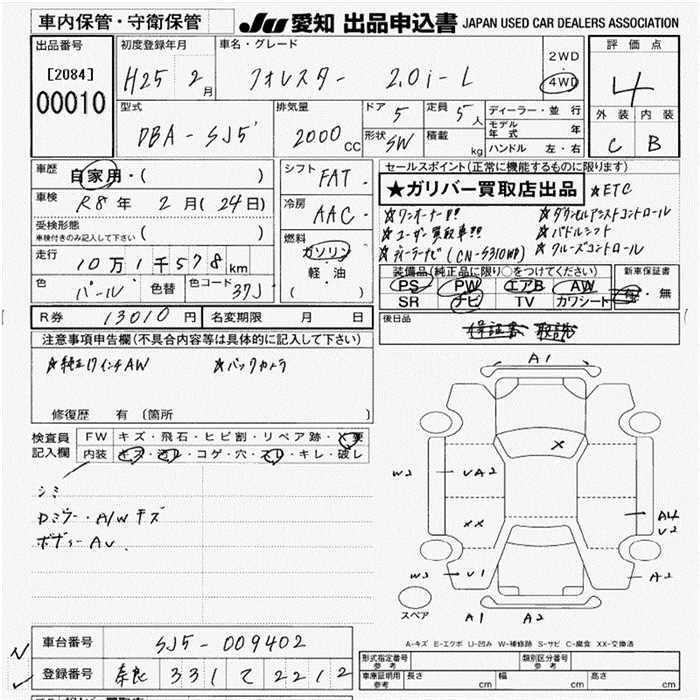 車内保管・守衛保管
JU 愛知 出品申込書 JAPAN USED CAR DEALERS ASSOCIATION
出品番号
[2084]
00010
初度登録年月
H25 2月
車名・グレード
フォレスター 2.0i-L
2WD
・
4WD
評価点
4
外装 内装
C B
型式
DBA-SJ5
排気量
2000 CC
ドア 5
定員 5人
形状 SW
積載 kg
ディーラー・並行
モデル年式 年
ハンドル 左・右
車歴
自家用・( )
車検
R8年 2月(24日)
受検形態
車検付きのみ記入して下さい ( )
走行
10万1千578km
色
パール
色替
色コード
37J
シフト
FAT
冷房
AAC
燃料
ガソリン
軽・油
( )
セールスポイント(正常に機能するものに限ります)
★ガリバー買取店出品
★ETC
★ワンオーナー!!
★ユーザー買取車!!
★ディーラーナビ(CN-S310WD)
★ダウンヒルアシストコントロール
★パドルシフト
★クルーズコントロール
装備品(純正品に限り○をつけてください)
PS PW エアB AW
SR ナビ TV カワシート
新車保証書
有・無
R券 13010円
名変期限 月 日
後日品
保証書 取説
注意事項申告欄(不具合内容等は具体的に記入して下さい)
★純正17インチAW ★バックカメラ
修復歴 有 〔箇所 〕
検査員
記入欄
FW キズ・飛石・ヒビ割・リペア跡・X要
内装 キズ・汚レ・コゲ・穴・スレ・キレ・破レ
シミ
Dミラー・A/Wキズ
ボディーAU
A1
X
W2 UA2
XX
A4
U2
W3 U1
A2
スペア
A1 A2
A-キズ E-エクボ U-凹み W-補修跡 S-サビ C-腐食 XX-交換済
車台番号 SJ5-009402
登録番号 奈良 331 て 2212
形式指定番号
参考
類別区分番号
参考
車庫証明用
参考
長さ cm 幅 cm 高さ cm